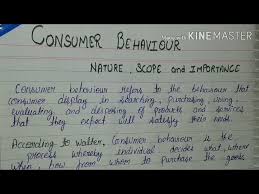 Made with KINEMASTER
CONSUMER BEHAVIOUR
NATURE, SCOPE and IMPORTANCE
Consumer behaviour refers to the behaviour that
consumer display in searching, purchasing, using,
evaluating and disposing of products and services
that they expect will satisfy their needs.
According to Walter, Consumer behaviour is the
process whereby individual decides what, where
when, how from whom to purchase the goods